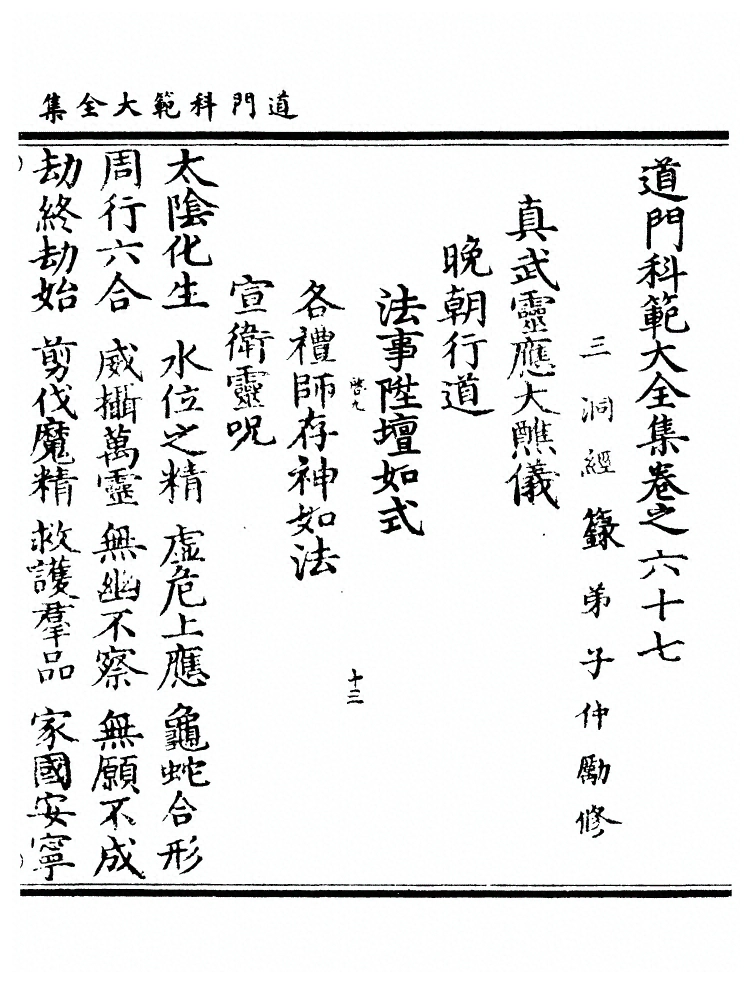 道門科範大全集
道門科範大全集卷之六十七
三洞經籙弟子仲勵修
真武靈應大醮儀
晚朝行道
法事陞壇如式
啓九
十三
各禮師存神如法
宣衛靈呪
太陰化生 水位之精 虛危上應 龜蛇合形
周行六合 威攝萬靈 無幽不察 無願不成
劫終劫始 剪伐魔精 救護羣品 家國安寧